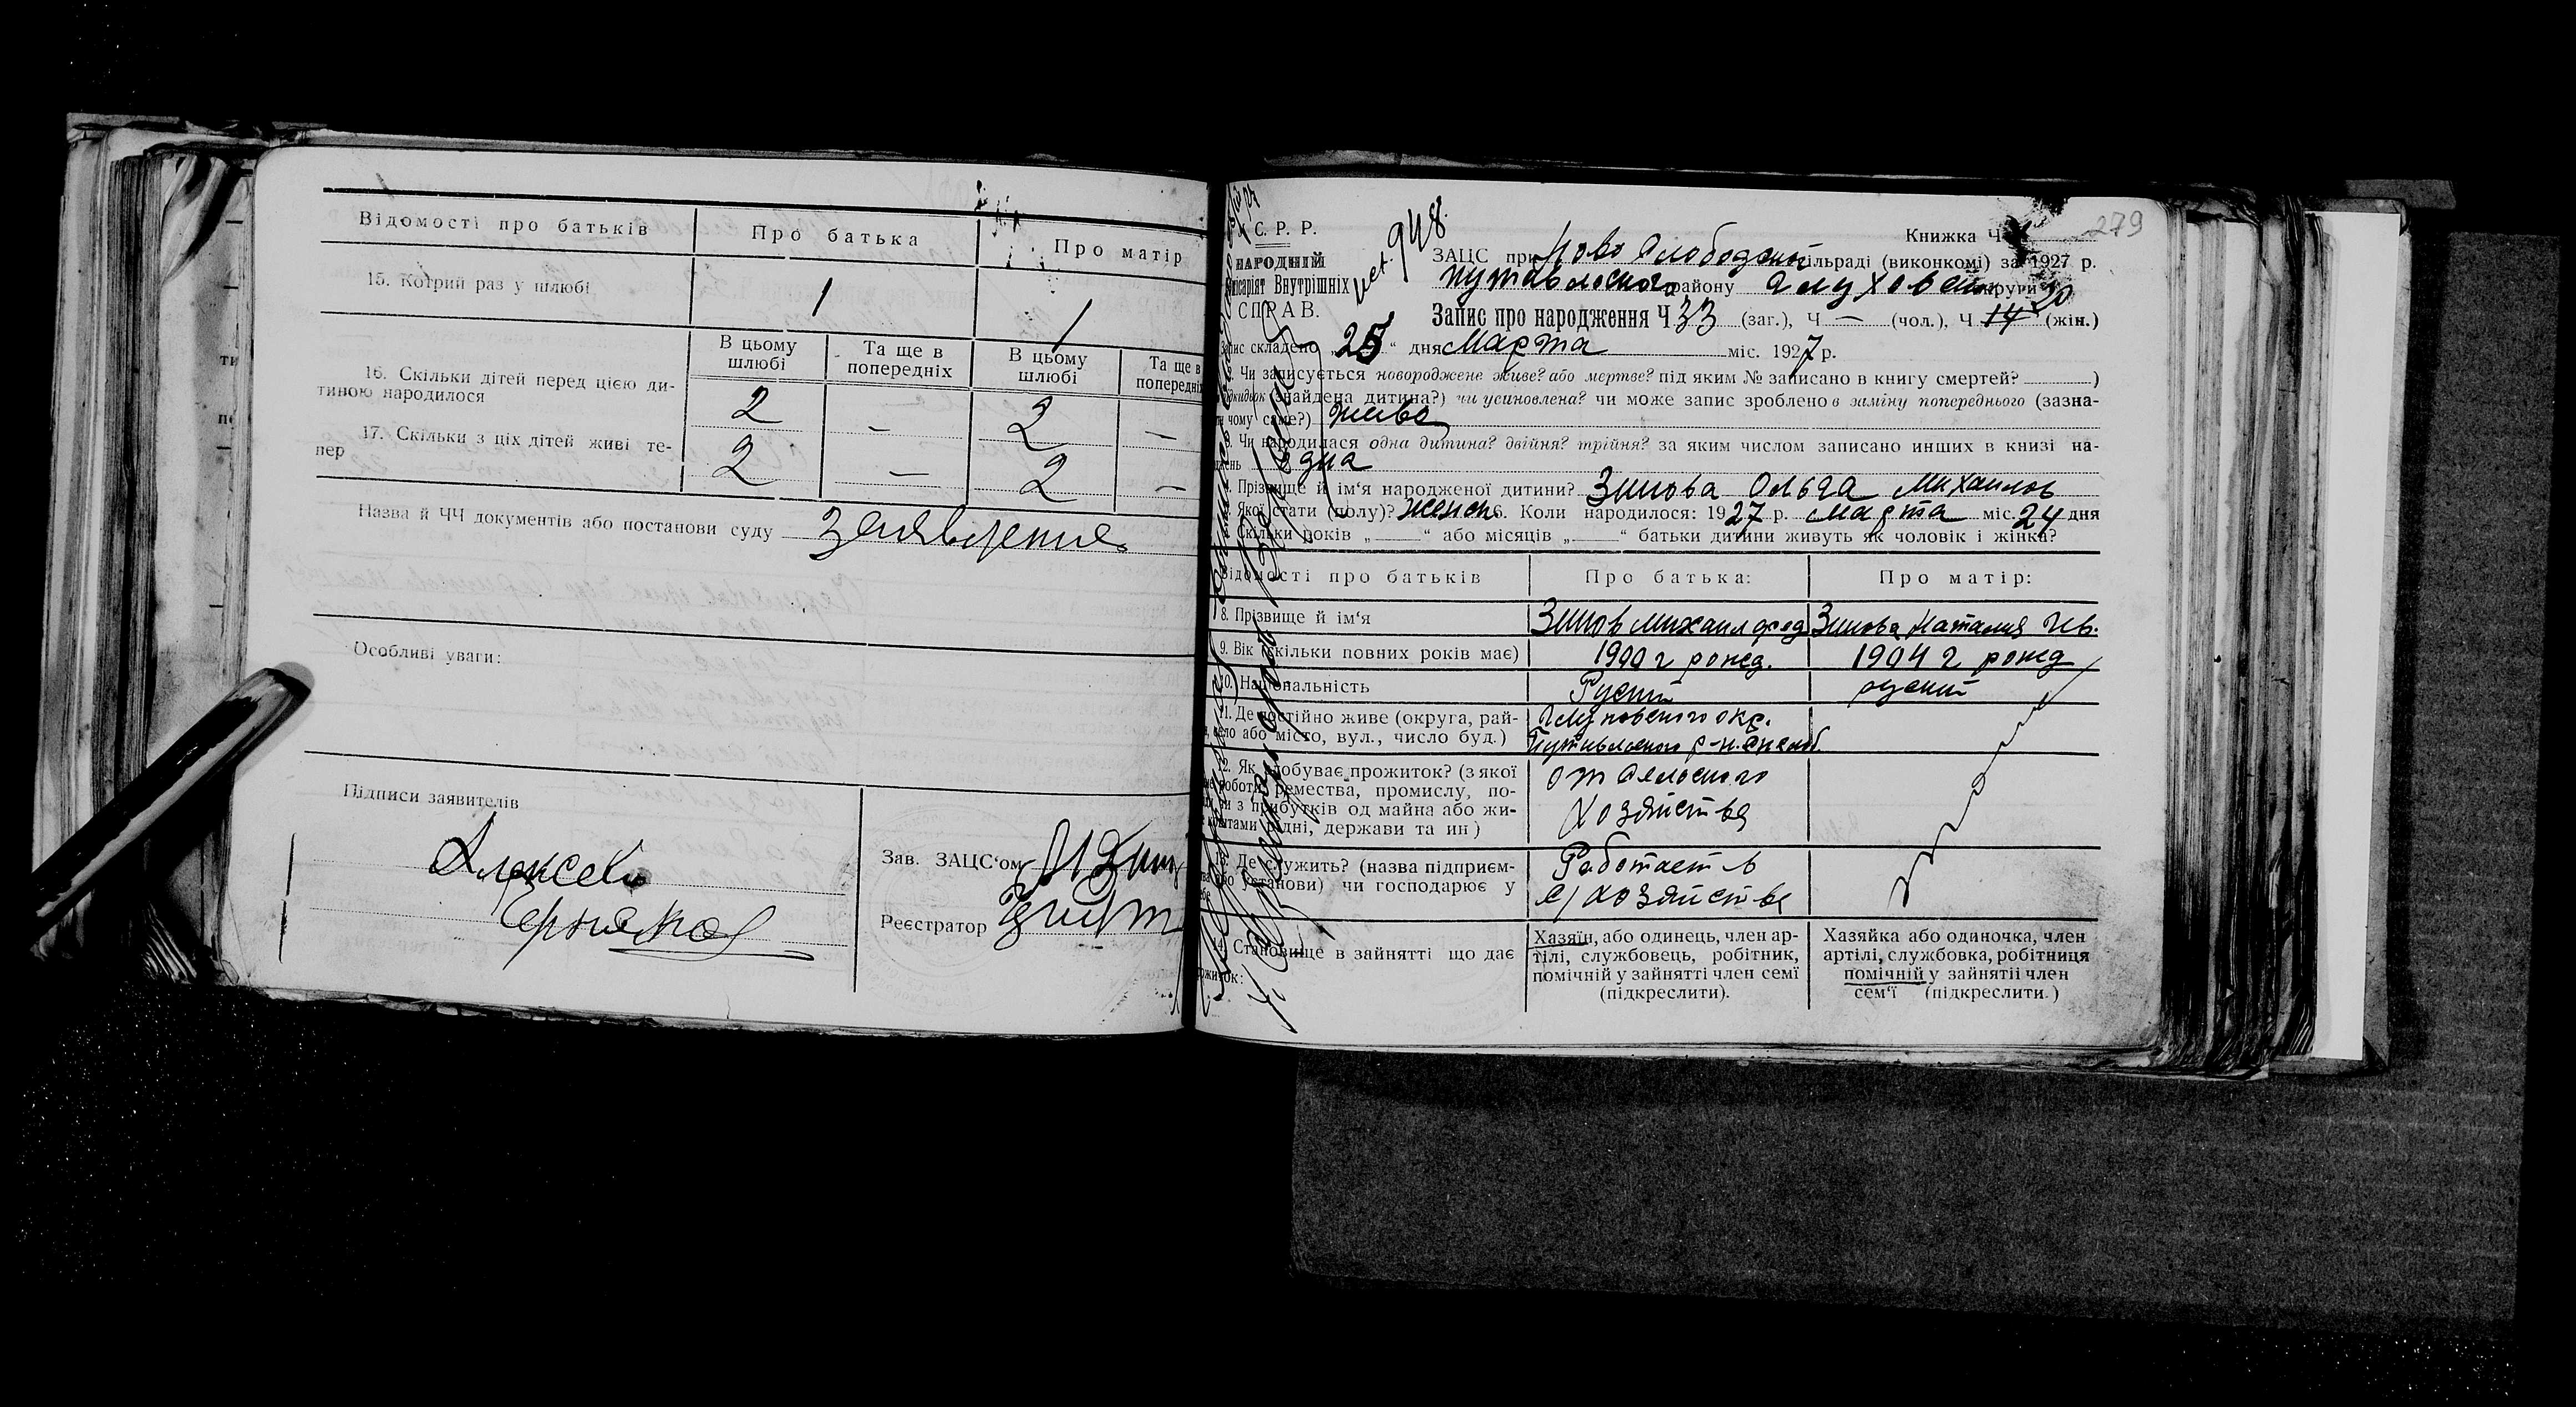 Відомості про батьків
Про батька
Про матір
15. Котрий раз у шлюбі
1
1
В цьому шлюбі
Та ще в попередніх
В цьому шлюбі
Та ще в
16. Скільки дітей перед цією ди-
тиною народилося
2
—
2
—
17. Скільки з ціх дітей живі те-
пер
2
—
2
—
Назва й ЧЧ документів або постанови суду
Заявление
Особливі уваги:
Підписи заявителів
Алексей
Зав. ЗАЦС‘ом
Реєстратор
279
С. Р. Р.
НАРОДНІЙ
Внутрішніх
СПРАВ.
948.
Книжка Ч
ЗАЦС при Ново Слободской (виконкомі) за 1927 р.
Путивльского району Глуховской округи
20
Запис про народження Ч 33 (заг.), Ч — (чол.), Ч 14 (жін.)
складено „25“ дня Марта міс. 1927 р.
Чи записується новороджене живе? або мертве? під яким № записано в книгу смертей? )
(знайдена дитина?) чи усиновлена? чи може запис зроблено в заміну попереднього (зазна-
чому саме?) живо
Чи народилася одна дитина? двійня? трійня? за яким числом записано инших в книзі на-
одна
Прізвище й ім‘я народженої дитини? Зинова Ольга Михайлов
Якої стати (полу)? женск 6. Коли народилося: 1927 р. Марта міс. 24 дня
Скільки років „ “ або місяців „ “ батьки дитини живуть як чоловік і жінка?
Відомості про батьків
Про батька:
Про матір:
8. Прізвище й ім‘я
Зинов Михаил Фед
Зинова Наталия Ив.
9. Вік (скільки повних років має)
1900 г рожд.
1904 г рожд
10. Національність
Руский
руский
11. Де постійно живе (округа, рай-
село або місто, вул., число буд.)
Глуховского окр.
Путивльского р-н.
12. Як здобуває прожиток? (з якої
роботи, ремества, промислу, по-
чи з прибутків од майна або жи-
коштами рідні, держави та ин )
от сельского
хозяйства
13. Де служить? (назва підприєм-
або установи) чи господарює у
Работает в
с/хозяйстве
14. Становище в зайнятті що дає
Хазяїн, або одинець, член ар-
тілі, службовець, робітник,
помічній у зайнятті член семї
(підкреслити).
Хазяйка або одиночка, член
артілі, службовка, робітниця
помічній у зайнятіі член
сем‘ї (підкреслити.)